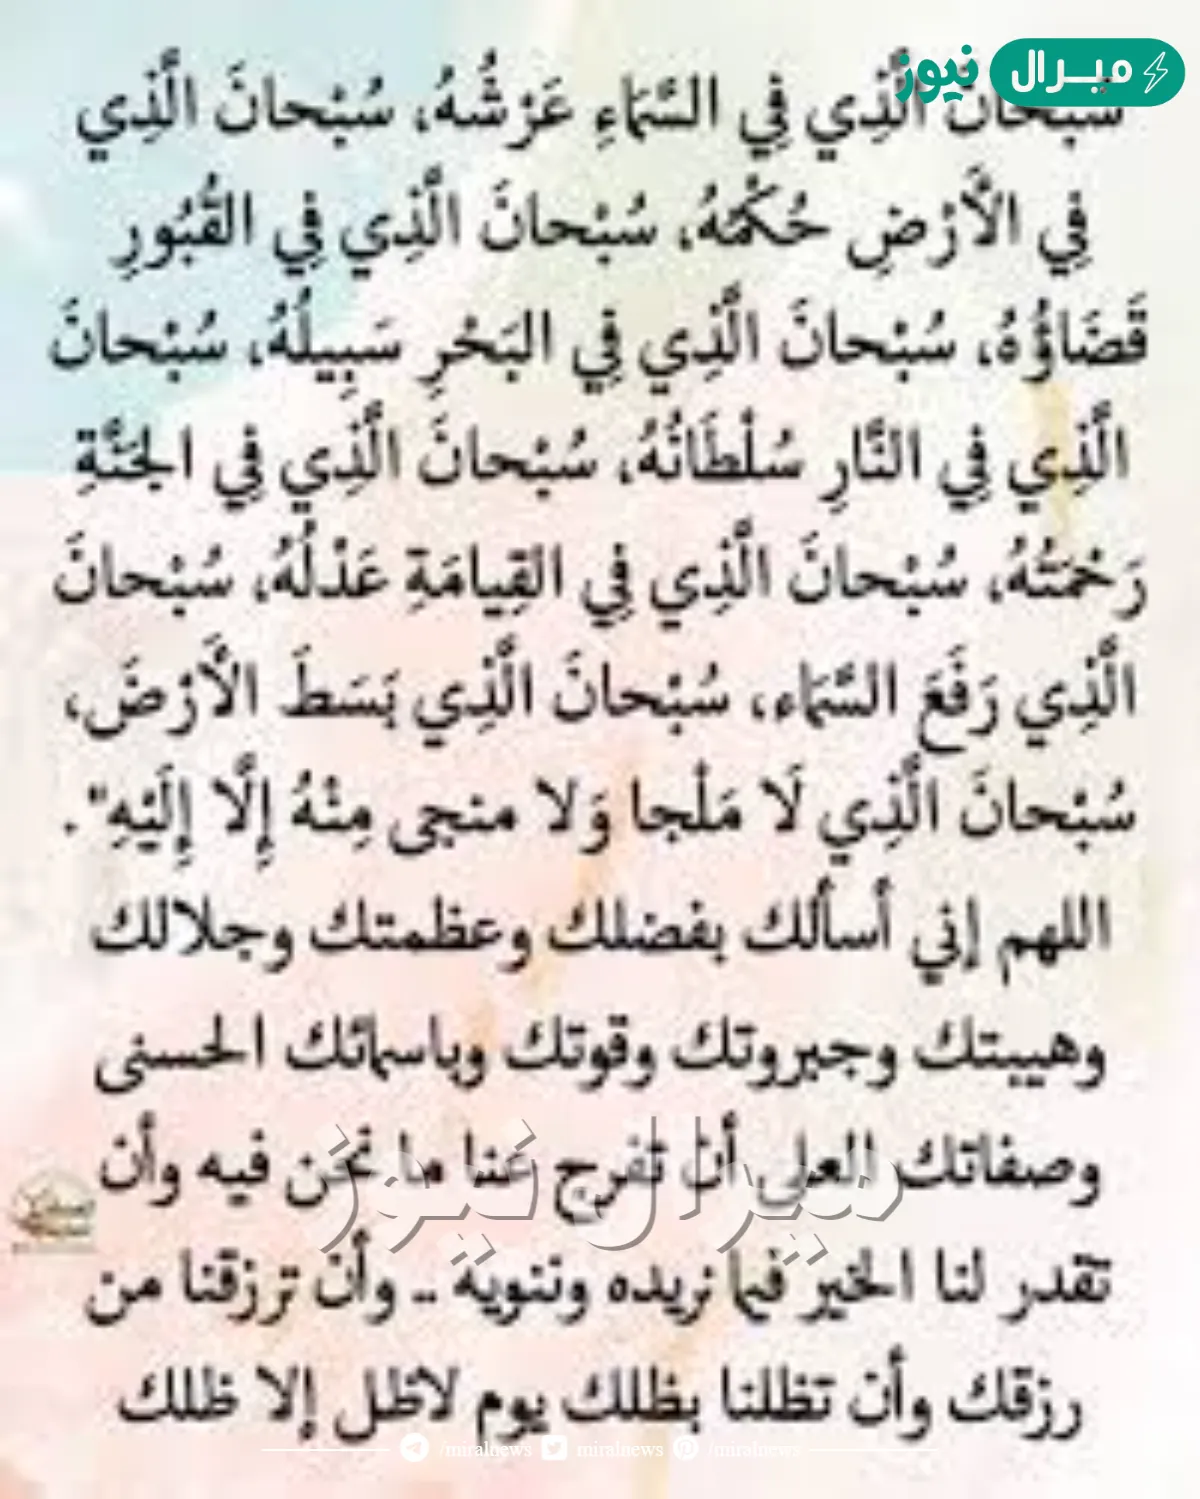 ميرال نيوز
سُبْحانَ الَّذِي فِي السَّمَاءِ عَرْشُهُ، سُبْحانَ الَّذِي
فِي الَأَرْضِ حُكْمُهُ، سُبْحانَ الَّذِي فِي القُبُورِ
قَضَاؤُهُ، سُبْحانَ الَّذِي فِي البَحْرِ سَبِيلُهُ، سُبْحانَ
الَّذِي فِي النَّارِ سُلْطَانُهُ، سُبْحانَ الَّذِي فِي الجَنَّةِ
رَحْمَتُهُ، سُبْحانَ الَّذِي فِي القِيامَةِ عَدْلُهُ، سُبْحانَ
الَّذِي رَفَعَ السَّمَاء، سُبْحانَ الَّذِي بَسَطَ الَأَرْضَ،
سُبْحانَ الَّذِي لَا مَلْجا وَلا منجى مِنْهُ إِلَّا إِلَيْهِ".
اللهم إني أسألك بفضلك وعظمتك وجلالك
وهيبتك وجبروتك وقوتك وباسمائك الحسنى
وصفاتك العلى أن تفرج عنا ما نحن فيه وأن
تقدر لنا الخير فيما نريده وننويه .. وأن ترزقنا من
رزقك وأن تظلنا بظلك يوم لاظل إلا ظلك
ميرال نيوز
/miralnews miralnews /miralnews